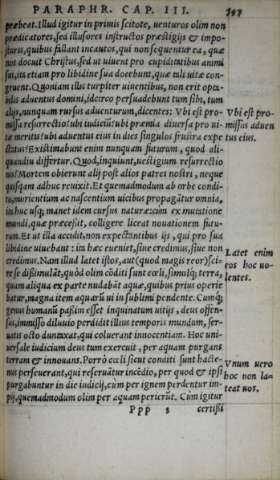 PARAPHR. CAP. III. 347
præbeat. Illud igitur in primis scitote, uenturos olim non
prædicatores, sed illusores instructos præstigijs & impo-
sturis, quibus fallant incautos, qui non sequentur ea, quæ
nos docuit Christus, sed ut uiuent pro cupiditatibus animi
sui, ita etiam pro libidine sua docebunt, quæ tali uitæ con-
gruent. Quoniam illis turpiter uiuentibus, non erit opta-
bilis aduentus domini, idcirco persuadebunt tum sibi, tum
alijs, nunquam rursus aduenturum, dicentes: Vbi est pro-
missa resurrectio? ubi iudicium? ubi præmia diuersa pro ui-
tæ meritis? ubi aduentus eius in dies singulos frustra expe
ctatus? Existimabunt enim nunquam futurum, quod ali-
quandiu differtur. Quod, inquiunt, uestigium resurrectio
nis? Mortem obierunt alij post alios patres nostri, neque
quisquam adhuc reuixit. Et quemadmodum ab orbe condi-
to, morientium ac nascentium uicibus propagatur omnia,
in huc usq; manet idem cursus naturæ: cum ex mutatione
mundi, quæ præcessit, colligere liceat nouationem futu-
ram. Et ut illa accidit, non expectantibus ijs, qui pro sua
libidine uiuebant: ita hæc eueniet, siue credimus, siue non
credimus. Nam illud latet istos, aut (quod magis reor) sci-
re se dissimulāt, quòd olim cōditi sunt cœli, simulq; terra,
quam aliqua ex parte nudabāt aquæ, quibus prius operie
batur, magna item aquarū ui in sublimi pendente. Cumq;
genus humanū passim esset inquinatum uitijs, deus offen-
sus, immisso diluuio perdidit illius temporis mundum, ser-
uatis octo duntaxat, qui coluerant innocentiam. Hoc uni-
uersale iudicium deus tum exercuit, per aquam purgans
terram & innouans. Porrò cœli sicut conditi sunt hacte-
nus perseuerant, qui reseruātur incēdio, per quod & ipsi
purgabuntur in die iudicij, cùm per ignem perdentur im-
pij, quemadmodum olim per aquam perierūt. Cùm igitur
Ppp 5 certissi
Vbi est pro-
missus aduen
tus eius.
Latet enim
eos hoc uo-
lentes.
Vnum uero
hoc non la-
teat uos.